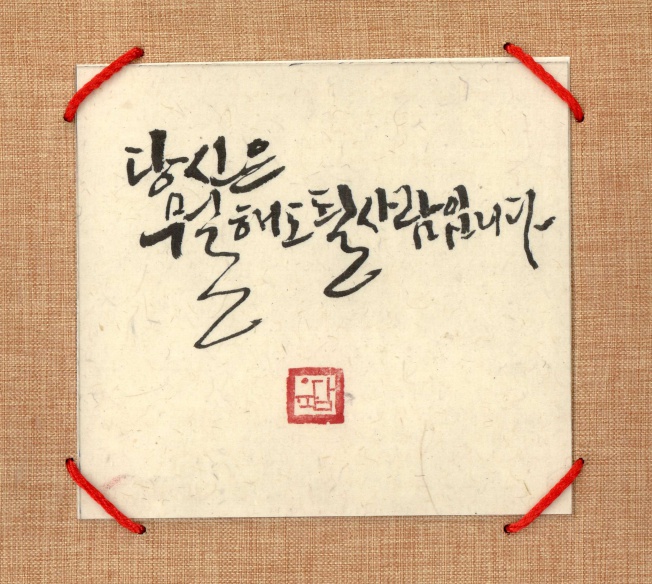 당신은
뭘해도 될사람입니다